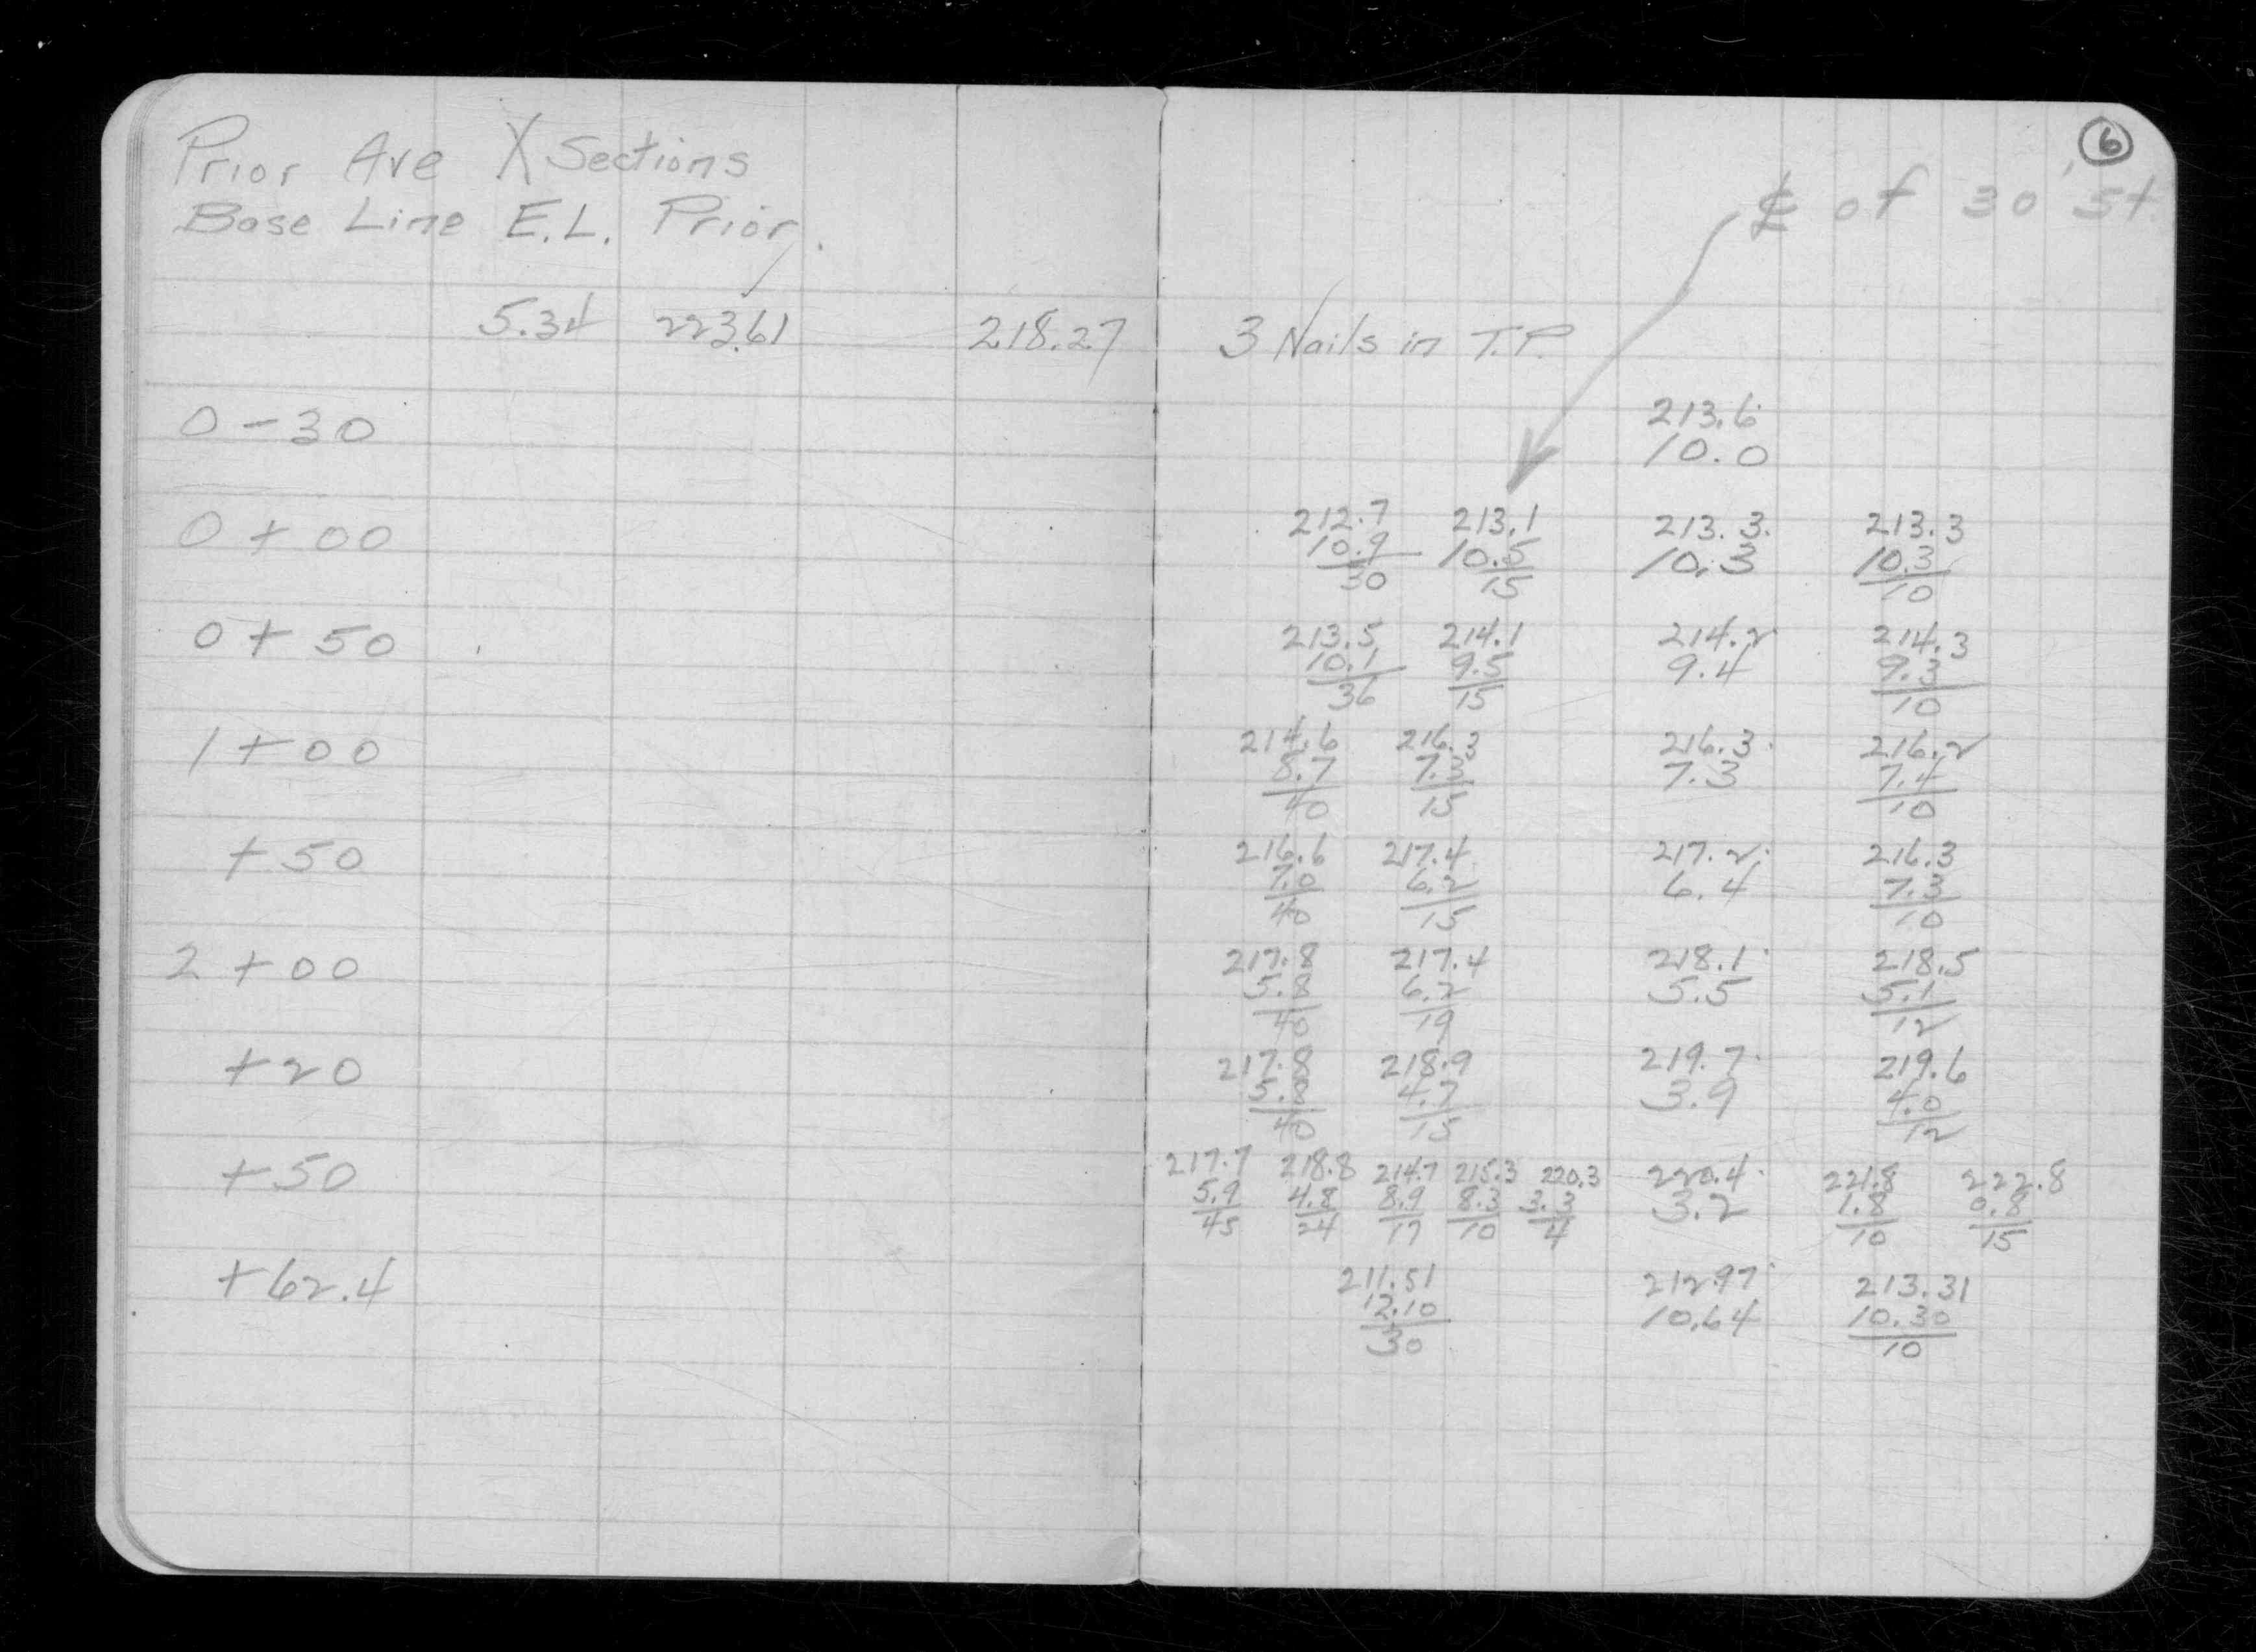 6
Prior Ave X Sections
℄ of 30' St.
Base Line E.L. Prior.
5.34 223.61 218.27 3 Nails in T.P.
213.6
0-30 10.0
212.7 213.1 213.3 213.3
0+00 10.9 10.5 10.3 10.3
30 15 10
213.5 214.1 214.2 214.3
0+50 10.1 9.5 9.4 9.3
36 15 10
214.6 216.3 216.3 216.2
1+00 8.7 7.3 7.3 7.4
40 15 10
216.6 217.4 217.2 216.3
+50 7.0 6.2 6.4 7.3
40 15 10
217.8 217.4 218.1 218.5
2+00 5.8 6.2 5.5 5.1
40 19 12
217.8 218.9 219.7 219.6
+20 5.8 4.7 3.9 4.0
40 15 12
217.7 218.8 214.7 215.3 220.3 220.4 221.8 222.8
+50 5.9 4.8 8.9 8.3 3.3 3.2 1.8 0.8
45 24 17 10 4 10 15
211.51 212.97 213.31
+62.4 12.10 10.64 10.30
30 10